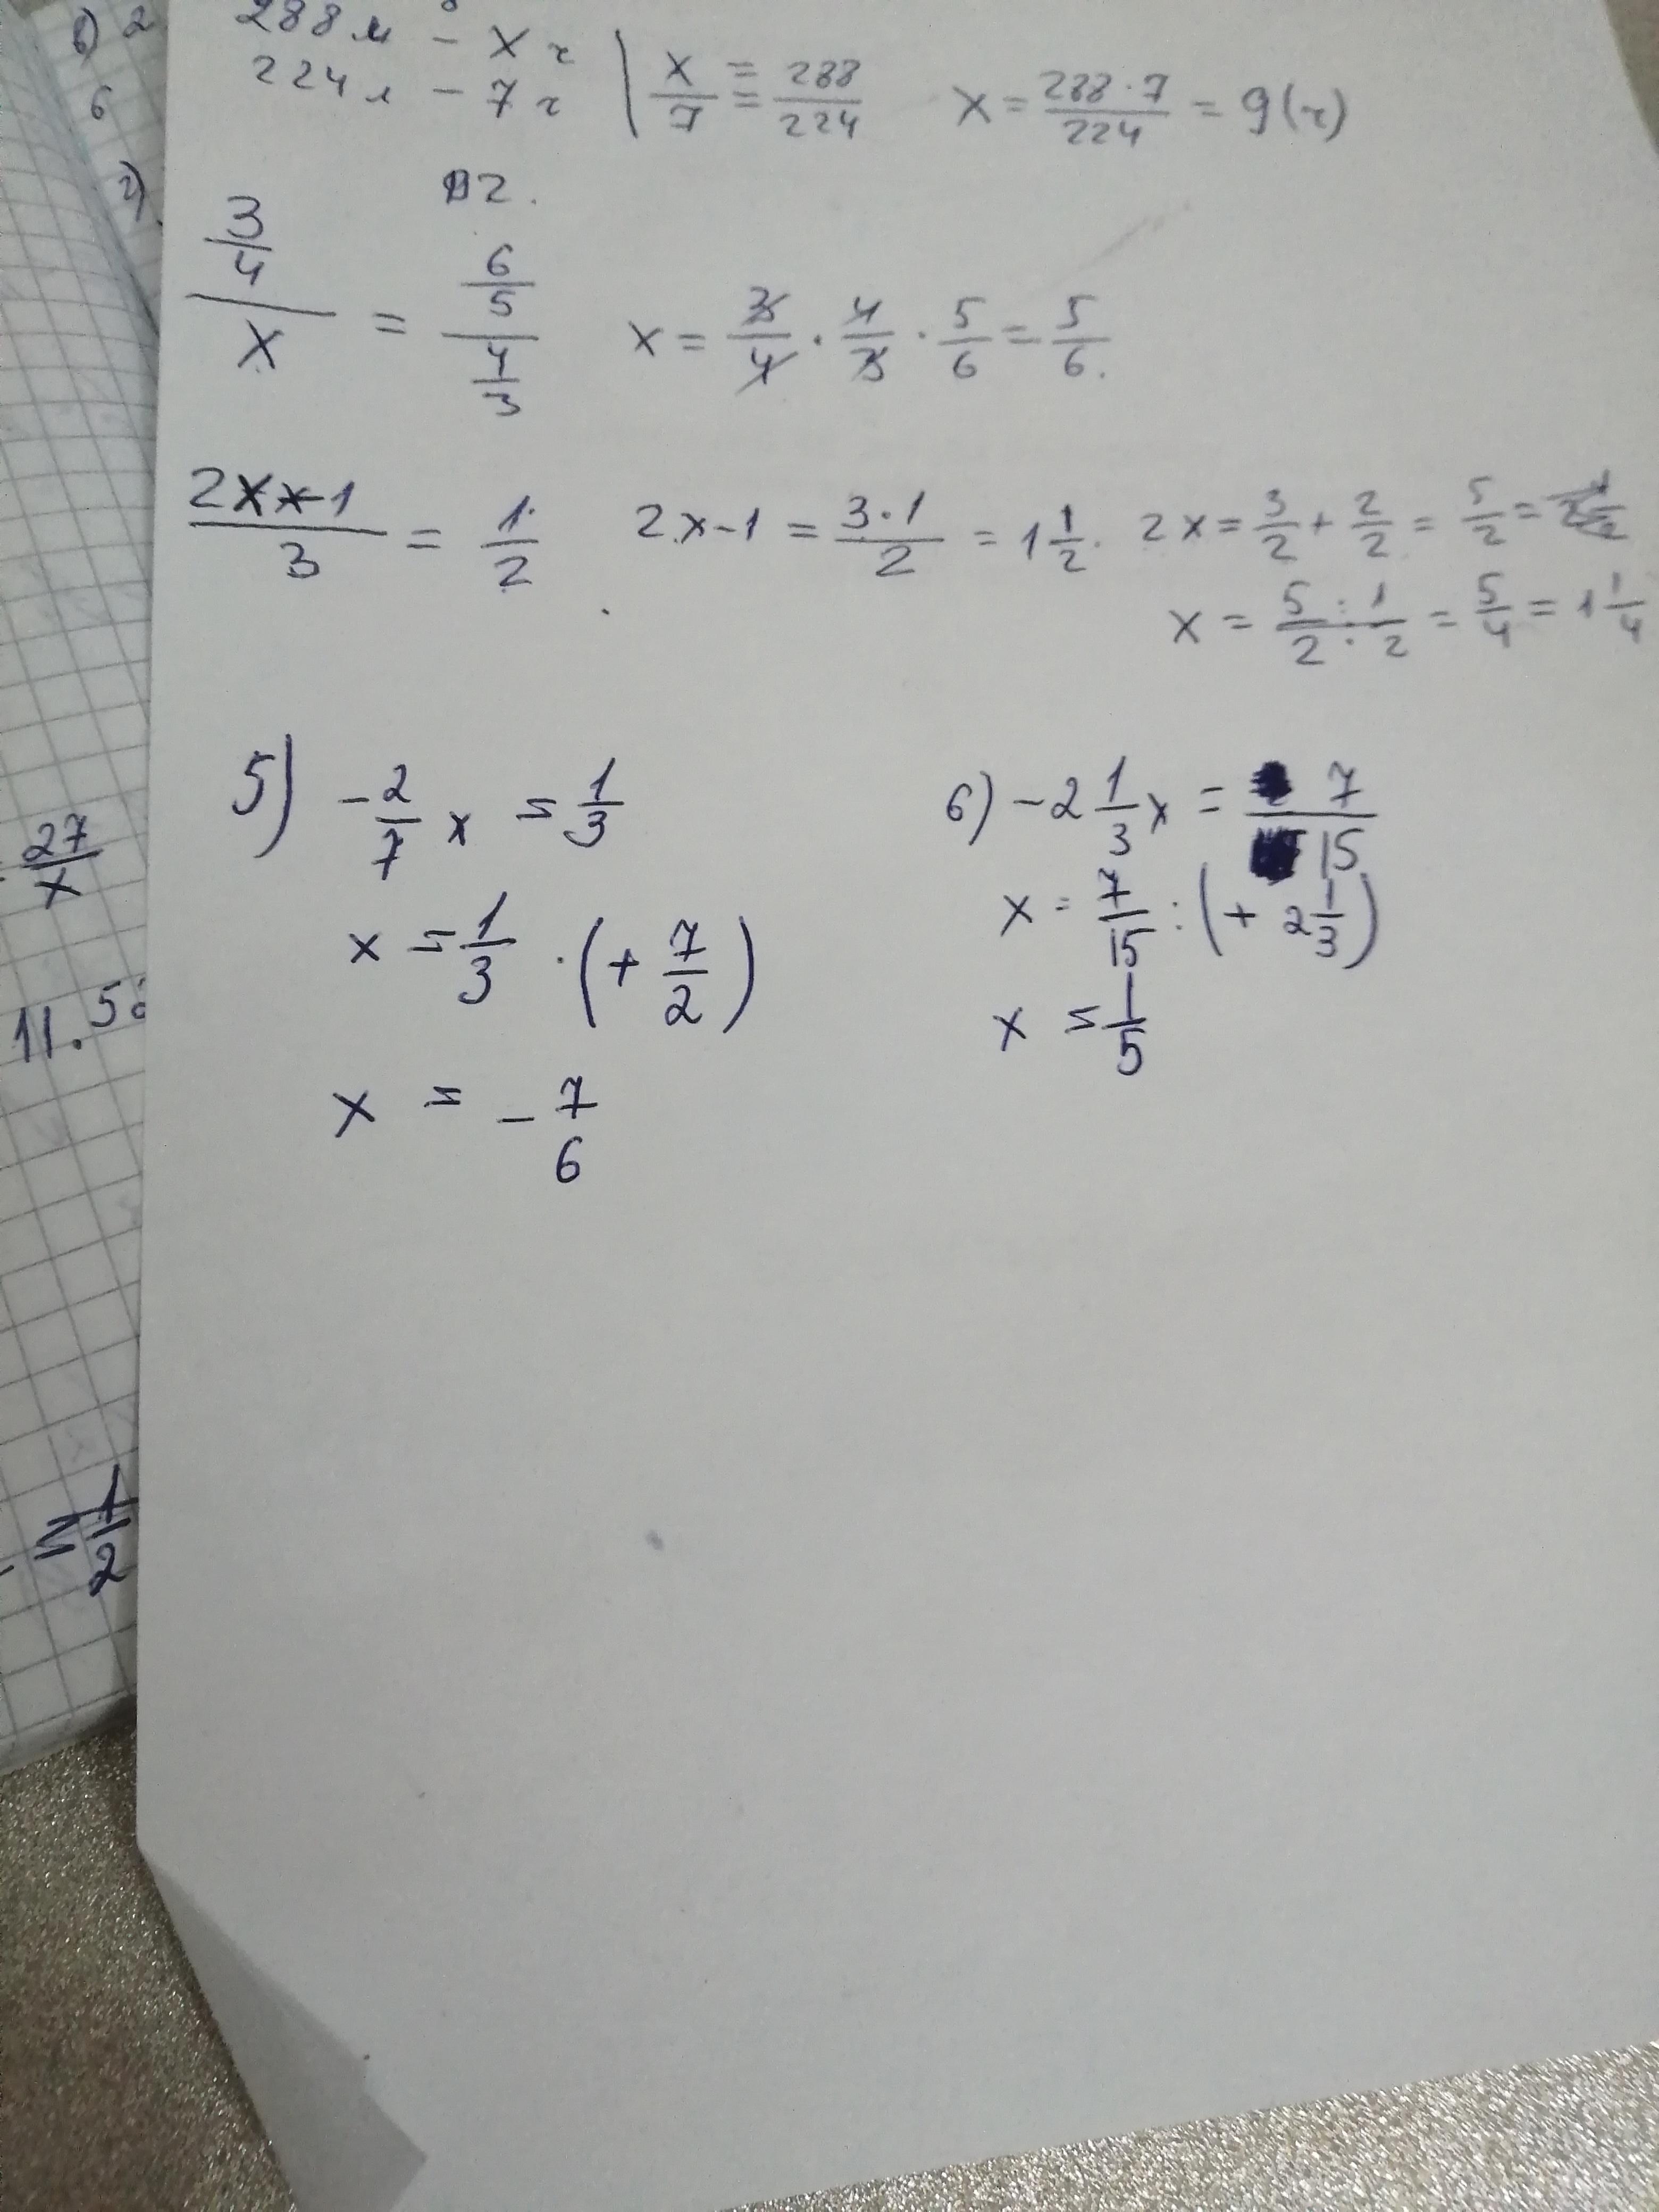 288 л - x ч
224 л - 7 ч | x/7 = 288/224 x = 288·7/224 = 9 (ч)
№2.
(3/4)/x = (6/5)/(4/3) x = 3/4 · 4/3 · 5/6 = 5/6.
2x-1/3 = 1/2 2x-1 = 3·1/2 = 1 1/2. 2x = 3/2 + 2/2 = 5/2 =
x = 5/2 : 1/2 = 5/4 = 1 1/4
5) -2/7 x = 1/3
x = 1/3 · (+ 7/2)
x = - 7/6
6) -2 1/3 x = 7/15
x = 7/15 : (+ 2 1/3)
x = 1/5
в) 2
6
г)
27/x
11.5
= 1/2